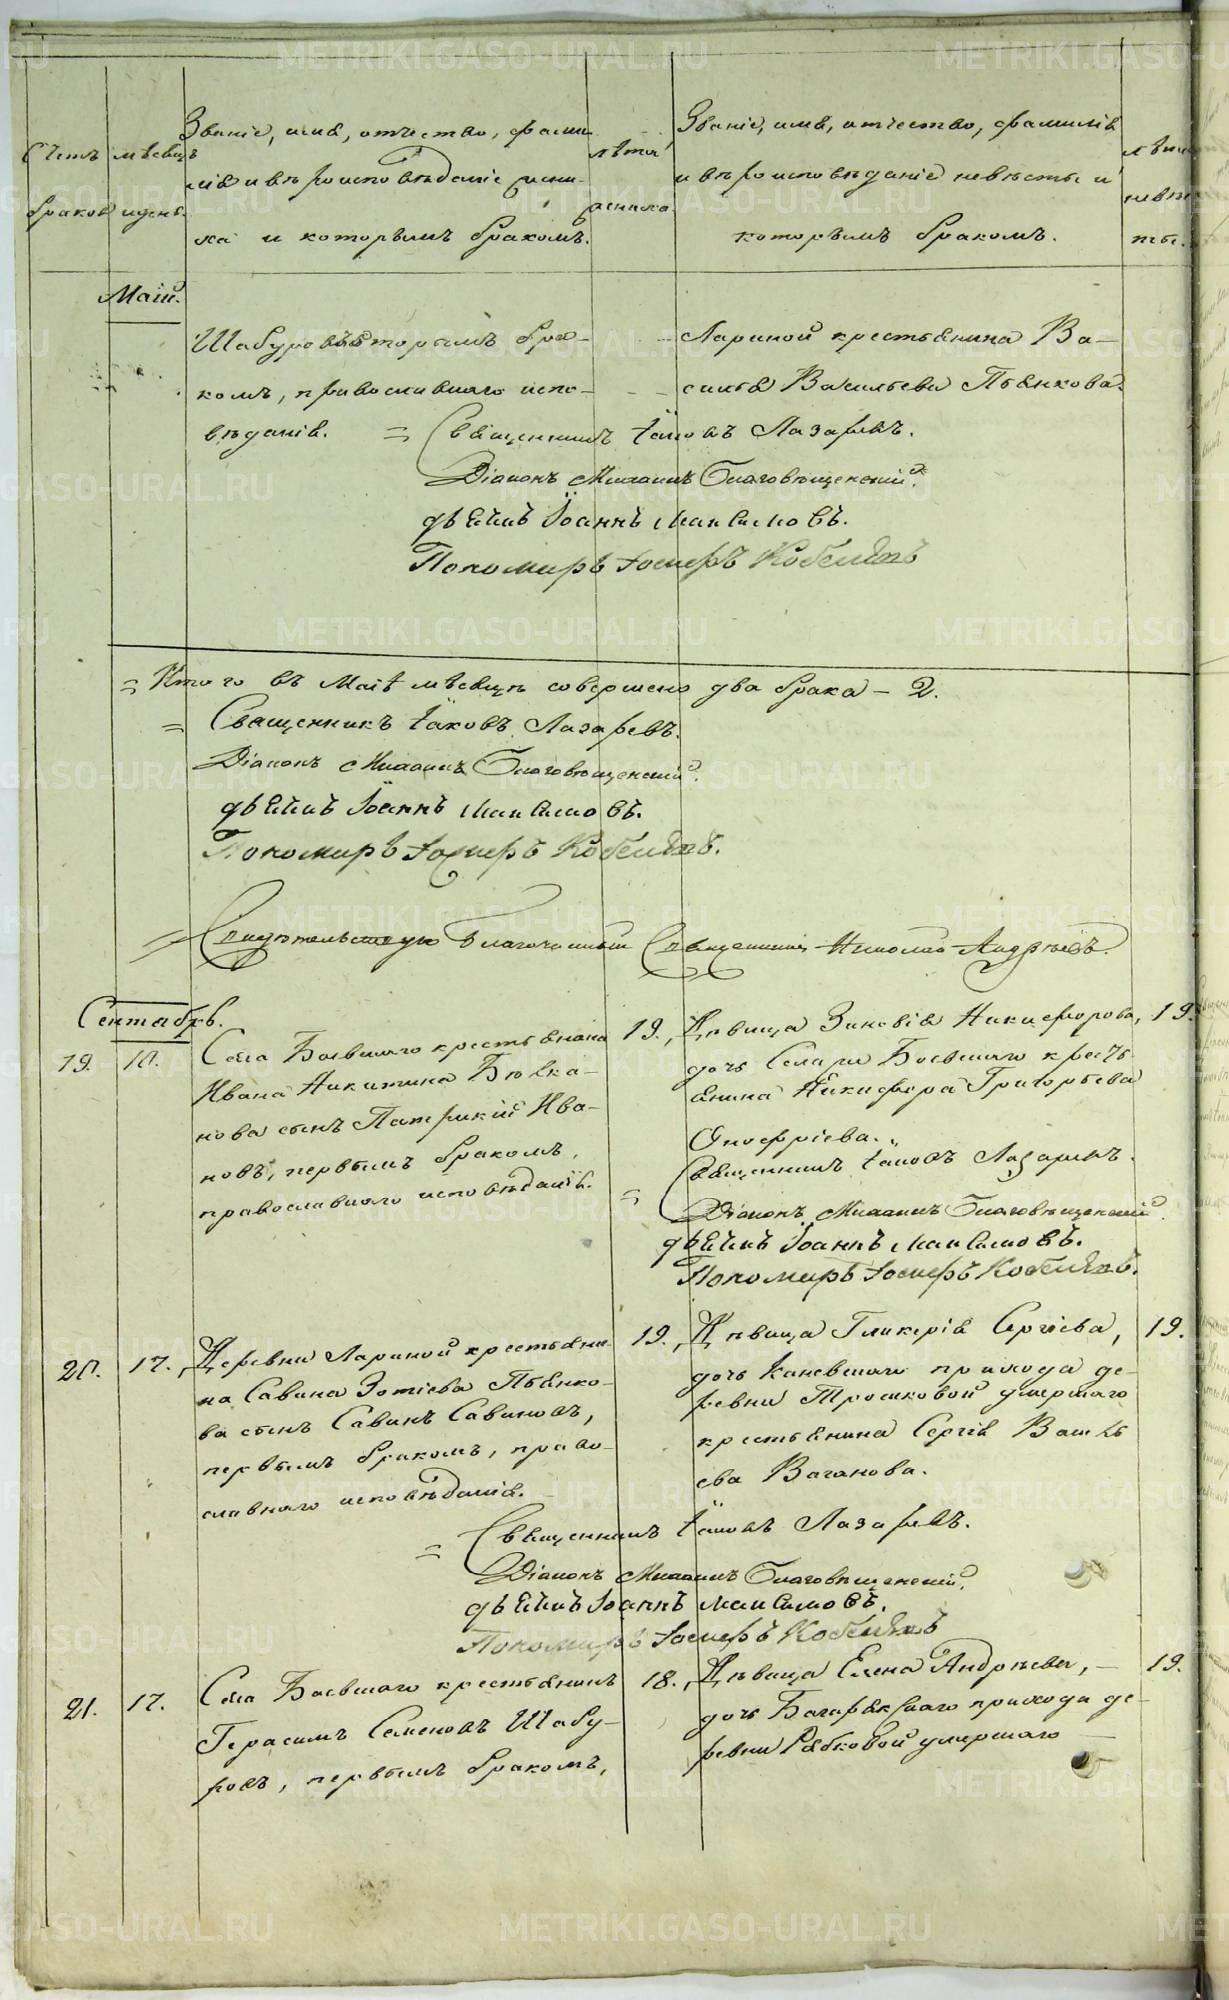 Счетъ
браковъ
мѣсяцъ
и день.
Званіе, имя, отчество, фами-
лія и вѣроисповѣданіе жени-
ха и которымъ бракомъ.
лѣта
жениха.
Званіе, имя, отчество, фамилія
и вѣроисповѣданіе невѣсты и
которымъ бракомъ.
лѣта
невѣ
сты.
Маій.
Шабуровъ вторымъ бра-
комъ, православнаго испо-
вѣданія.
Лариной крестьянина Ва-
силья Васильева Пьянкова.
= Священникъ Іаковъ Лазаревъ.
Діаконъ Михаилъ Благовѣщенскій.
дьячикъ Іоаннъ Максимовъ.
Пономарь Іосифъ Кобелевъ
= Итого въ Маіѣ мѣсяцѣ совершено два брака – 2.
= Священникъ Іаковъ Лазаревъ.
Діаконъ Михаилъ Благовѣщенскій.
дьячикъ Іоаннъ Максимовъ.
Пономарь Іосифъ Кобелевъ.
= Свидѣтельствую Благочинный Священникъ Николай Андреевъ.
Сентябрь.
19. 10. Села Баевшаго крестьянина
Ивана Никитина
нова сынъ Патрикій Ива-
новъ, первымъ бракомъ,
православнаго исповѣданія.
19.
Дѣвица Зиновія Никифорова,
дочь Села Баевшаго кресть
янина Никифора Григорьева
Онофріева.
19.
= Священникъ Іаковъ Лазаревъ.
Діаконъ Михаилъ Благовѣщенскій.
дьячикъ Іоаннъ Максимовъ.
Пономарь Іосифъ Кобелевъ.
20. 17. Деревни Лариной крестьяни
на Савина Зотіева Пьянко-
ва сынъ Савинъ Савиновъ,
первымъ бракомъ, право-
славнаго исповѣданія.
19.
Дѣвица Гликерія Сергіева,
дочь прихода де-
ревни Трошковой умершаго
крестьянина Сергія Василь
ева Ваганова.
19.
= Священникъ Іаковъ Лазаревъ.
Діаконъ Михаилъ Благовѣщенскій.
дьячикъ Іоаннъ Максимовъ.
Пономарь Іосифъ Кобелевъ
21. 17. Села Баевшаго крестьянинъ
Герасимъ Семеновъ Шабу-
ровъ, первымъ бракомъ,
18.
Дѣвица Елена Андреева, –
дочь Багарякскаго прихода де-
ревни Рябковой умершаго –
19.
METRIKI.GASO-URAL.RU